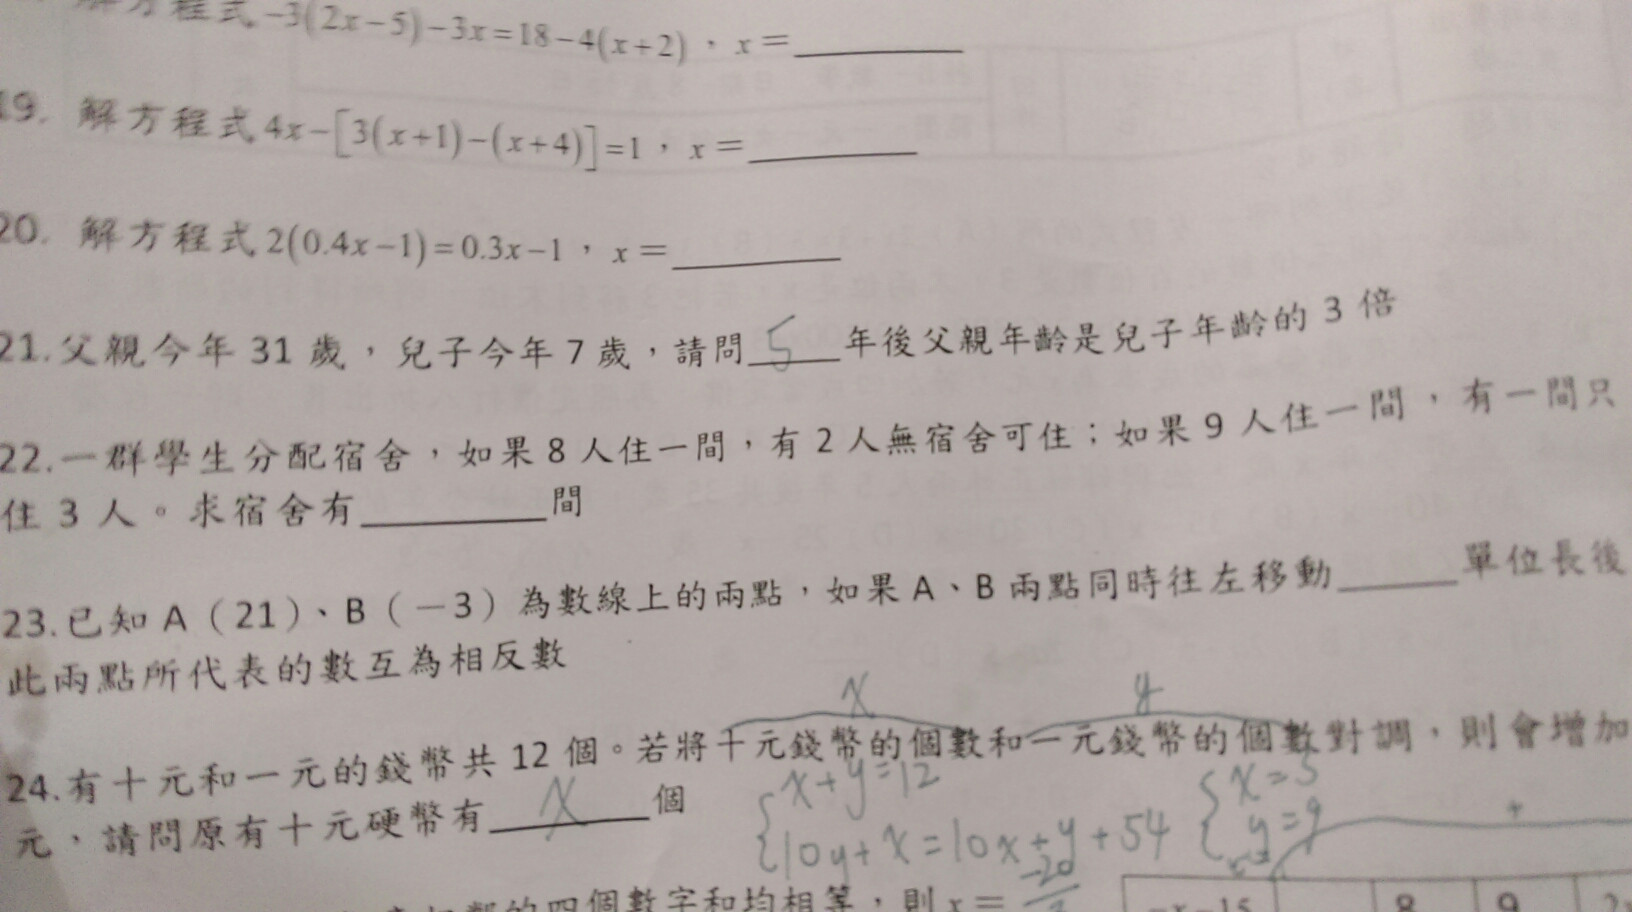 解方程式 -3(2x-5)-3x=18-4(x+2)，x=______
19. 解方程式 4x-[3(x+1)-(x+4)]=1，x=______
20. 解方程式 2(0.4x-1)=0.3x-1，x=______
21.父親今年 31 歲，兒子今年 7 歲，請問 5 年後父親年齡是兒子年齡的 3 倍
22.一群學生分配宿舍，如果 8 人住一間，有 2 人無宿舍可住；如果 9 人住一間，有一間只
住 3 人。求宿舍有______間
23.已知 A（21）、B（－3）為數線上的兩點，如果 A、B 兩點同時往左移動______單位長後
此兩點所代表的數互為相反數
x y
24.有十元和一元的錢幣共 12 個。若將十元錢幣的個數和一元錢幣的個數對調，則會增加
元，請問原有十元硬幣有 x 個
{x+y=12
{10y+x=10x+y+54
{x=3
y=9
的四個數字和均相等，則 x=
-20
-x-15 8 9